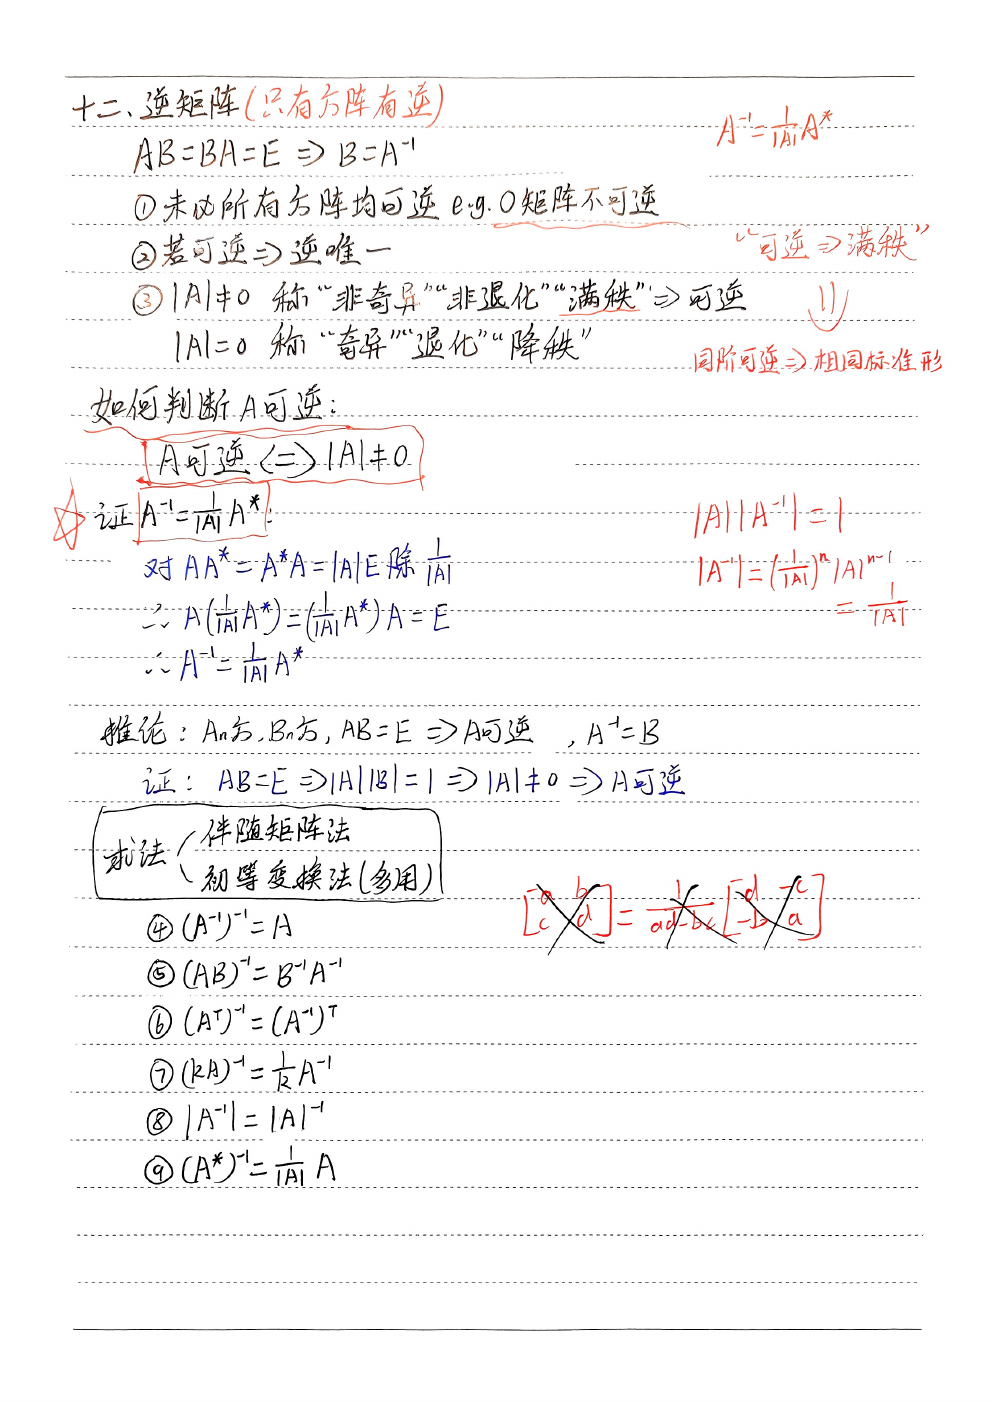 十二、逆矩阵(只有方阵有逆)
A⁻¹=1/|A| A*
AB=BA=E ⇒ B=A⁻¹
①未必所有方阵均可逆 e.g. O矩阵不可逆
②若可逆⇒逆唯一
“可逆⇒满秩”
③|A|≠0 称“非奇异”“非退化”“满秩”⇒可逆
|A|=0 称“奇异”“退化”“降秩”
同阶可逆⇒相同标准形
如何判断A可逆:
A可逆⟨=⟩|A|≠0
☆证 A⁻¹=1/|A| A*:
|A||A⁻¹|=1
对AA*=A*A=|A|E除1/|A|
|A⁻¹|=(1/|A|)ⁿ|A|ⁿ⁻¹
=1/|A|
∴A(1/|A| A*)=(1/|A| A*)A=E
∴A⁻¹=1/|A| A*
推论:An方.Bn方,AB=E⇒A可逆,A⁻¹=B
证:AB=E⇒|A||B|=1⇒|A|≠0⇒A可逆
求法
伴随矩阵法
初等变换法(多用)
[a b
c d]=1/(ad-bc)[d -c
-b a]
④(A⁻¹)⁻¹=A
⑤(AB)⁻¹=B⁻¹A⁻¹
⑥(Aᵀ)⁻¹=(A⁻¹)ᵀ
⑦(kA)⁻¹=1/k A⁻¹
⑧|A⁻¹|=|A|⁻¹
⑨(A*)⁻¹=1/|A| A